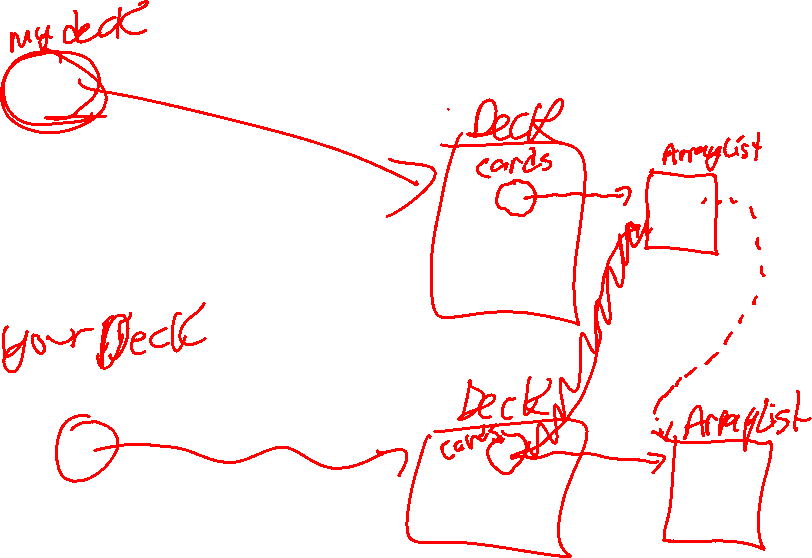 my deck
Deck
cards
ArrayList
your Deck
Deck
cards
ArrayList